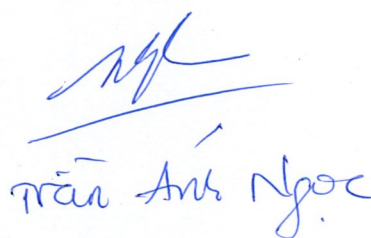 Trần Anh Ngọc